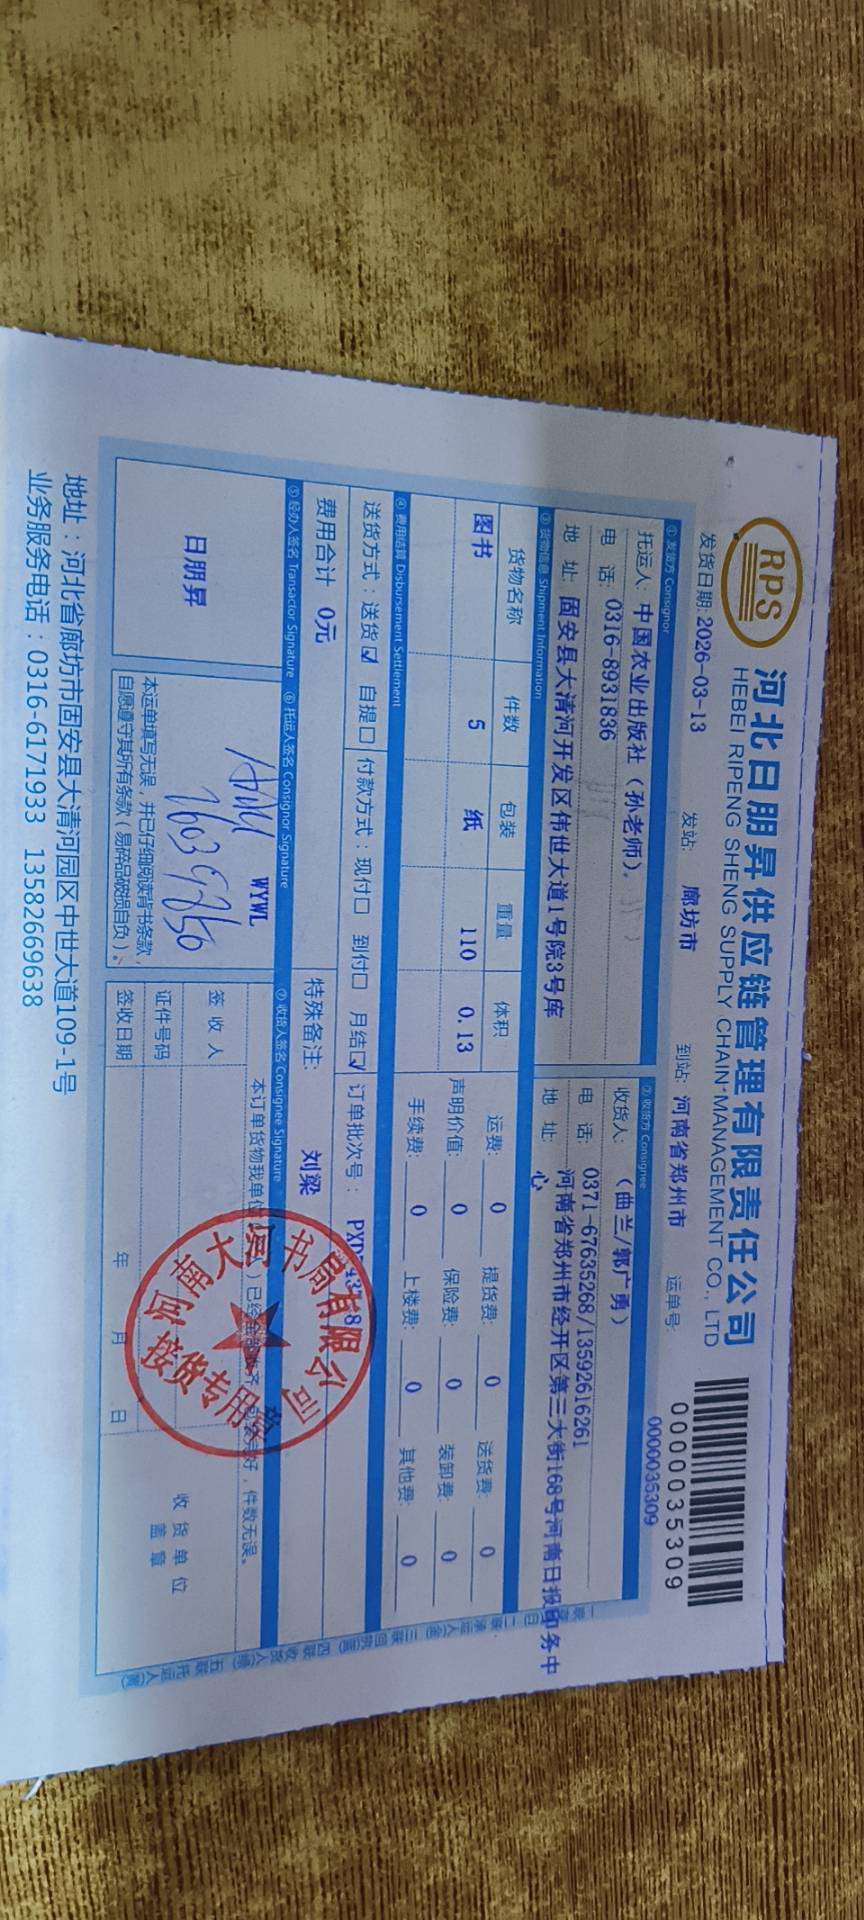 RPS
河北日朋昇供应链管理有限责任公司
HEBEI RIPENG SHENG SUPPLY CHAIN MANAGEMENT CO., LTD
0000035309
发货日期: 2026-03-13 发站: 廊坊市 到站: 河南省郑州市 运单号: 0000035309
① 发货方 Consignor ② 收货方 Consignee
托运人: 中国农业出版社(孙老师), 收货人: (曲兰/郭广勇)
电 话: 0316-8931836 电 话: 0371-67635268/13592616261
地 址: 固安县大清河开发区伟世大道1号院3号库 地 址: 河南省郑州市经开区第三大街168号河南日报印务中心
③ 货物信息 Shipment Information
货物名称 件数 包装 重量 体积 运费: 0 提货费: 0 送货费: 0
图书 5 纸 110 0.13 声明价值: 0 保险费: 0 装卸费: 0
手续费: 0 上楼费: 0 其他费: 0
④ 费用结算 Disbursement Settlement
送货方式: 送货☑ 自提☐ 付款方式: 现付☐ 到付☐ 月结☑ 订单批次号:
费用合计 0元 特殊备注: 刘梁
⑤ 经办人签名 Transactor Signature ⑥ 托运人签名 Consignor Signature ⑦ 收货人签名 Consignee Signature
日朋昇
WYWL
本运单填写无误,并已仔细阅读背书条款,
自愿遵守其所有条款(易碎品破损自负)。
本订单货物我单位
件数无误。
签 收 人
证件号码
签收日期 年 月 日
收货单位
盖 章
河南大河书局有限公司
接货专用章
地址:河北省廊坊市固安县大清河园区中世大道109-1号
业务服务电话:0316-6171933 13582669638